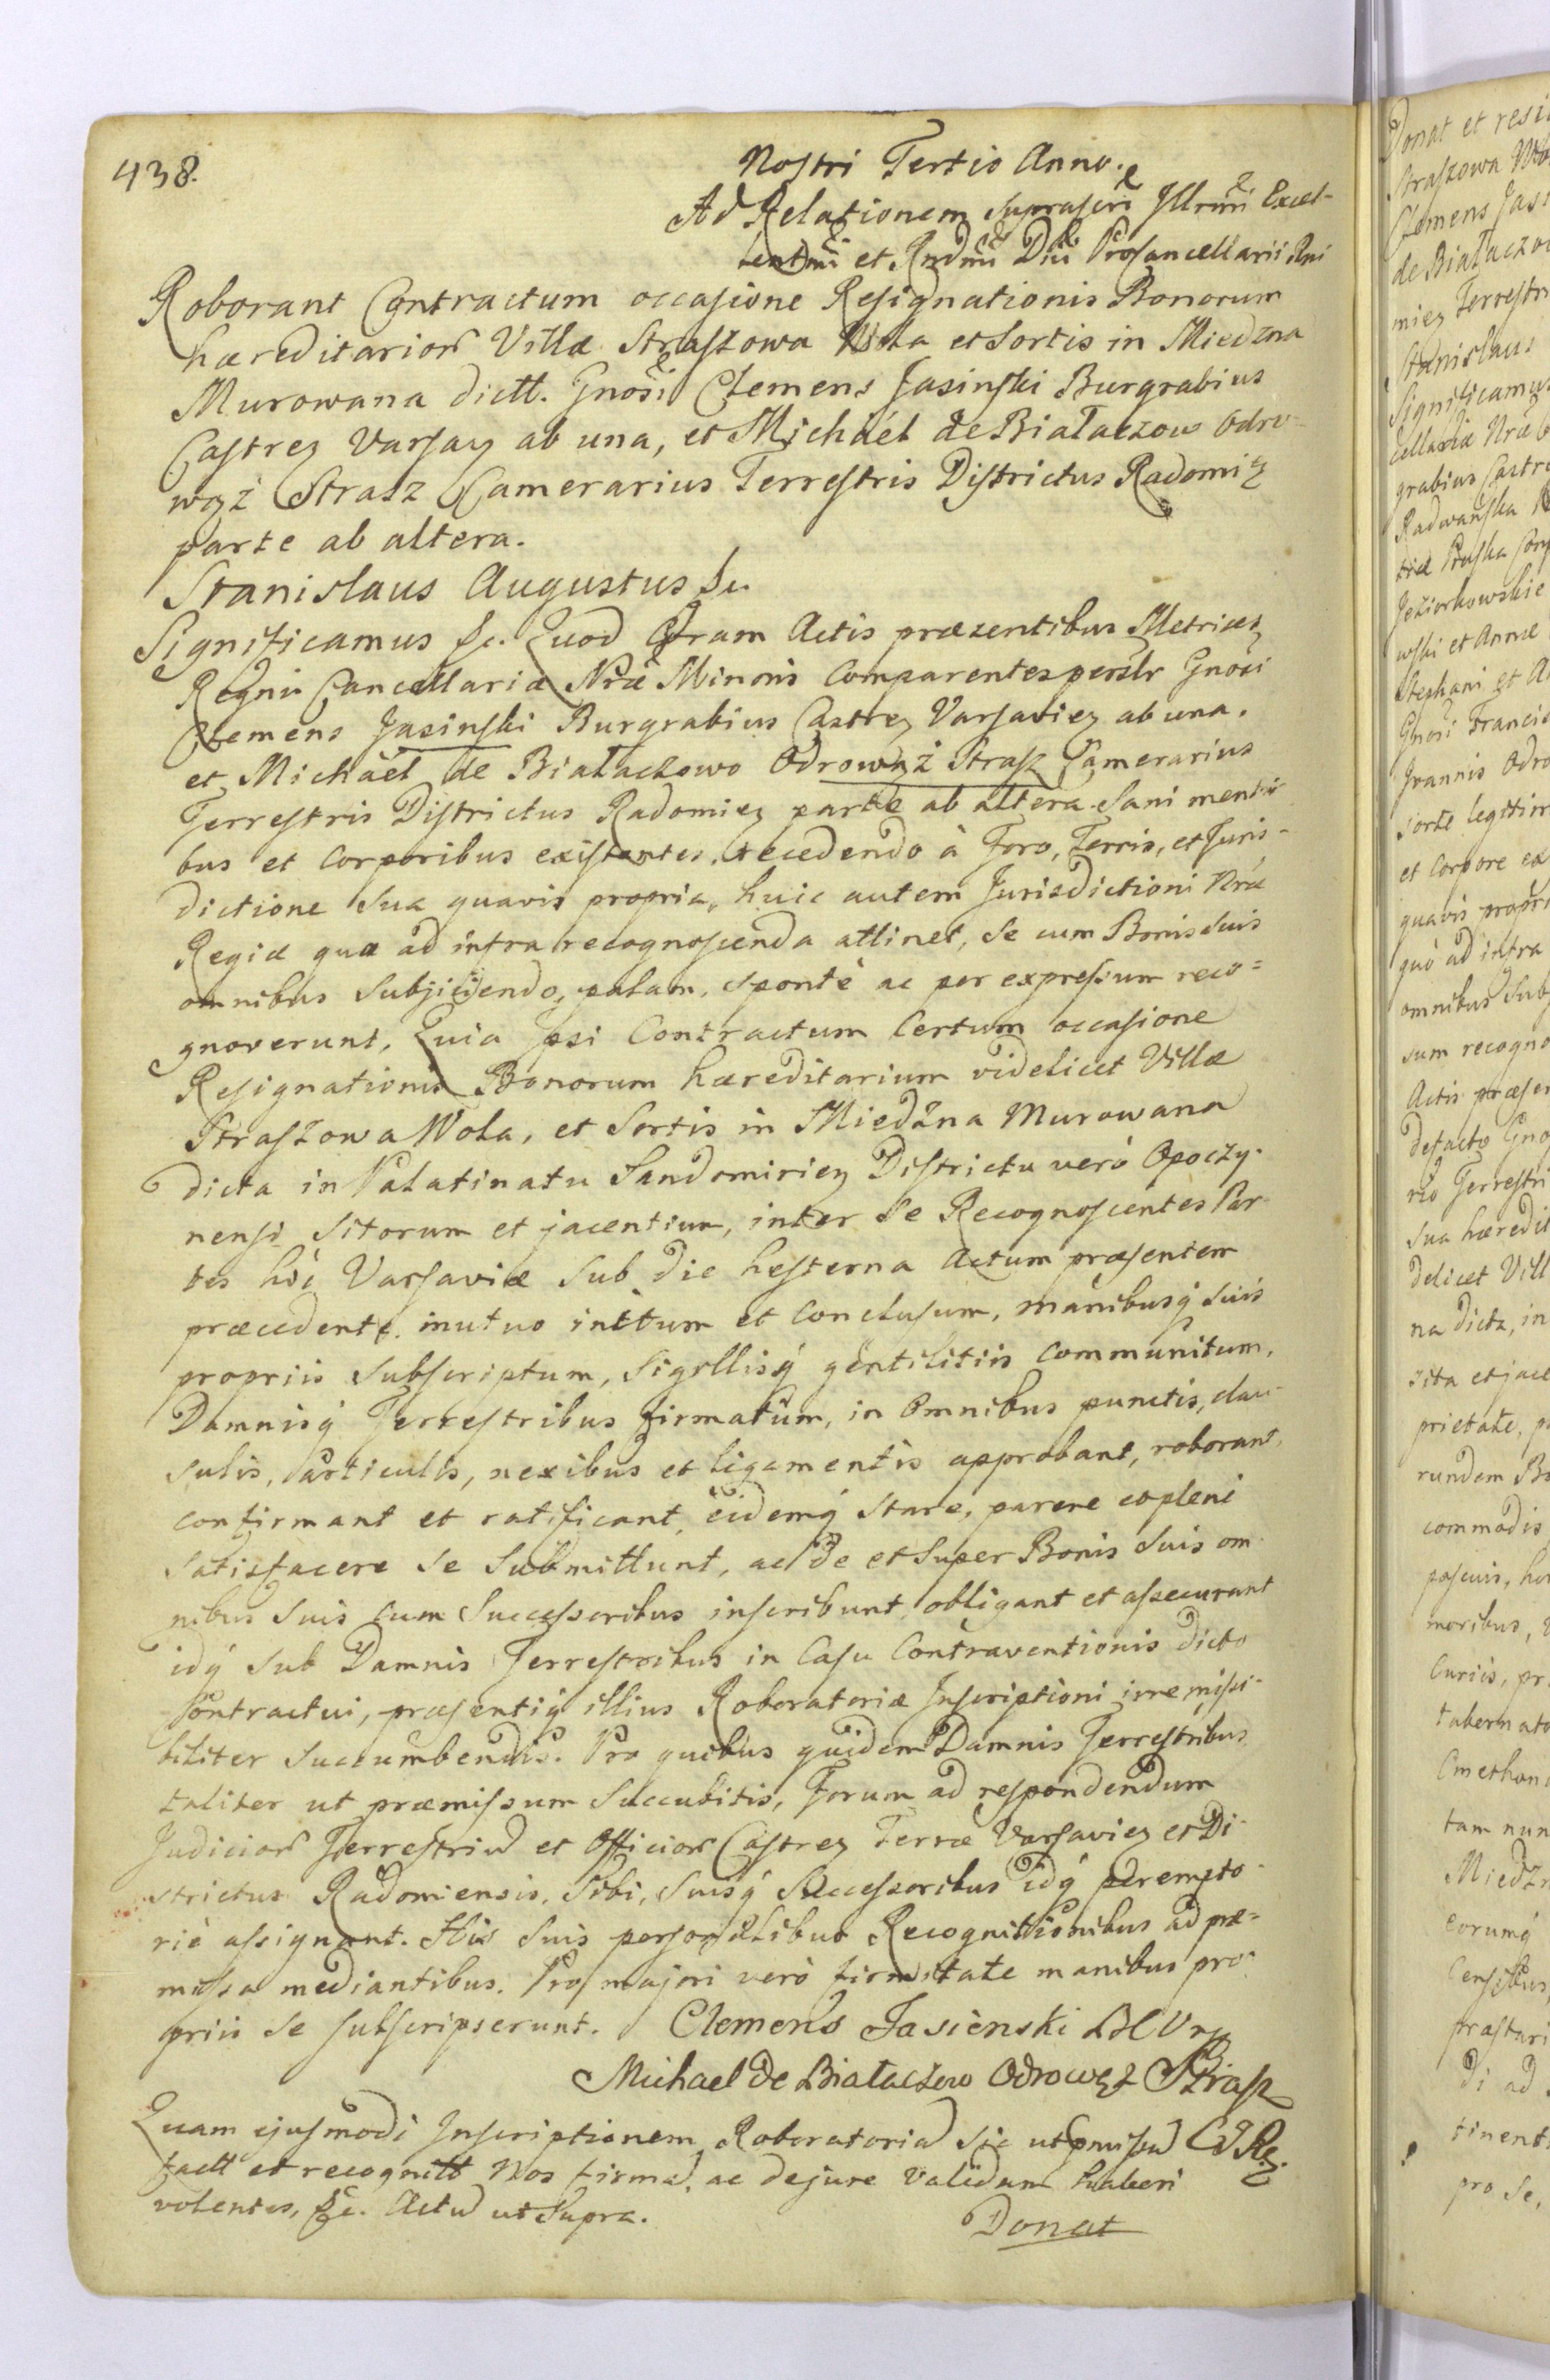 438.
Nostri Tertio Anno.
Ad Relationem suprascri Illrmi Excel-
lentmi et Rndmi Dni ProCancellarii Rni
Roborant Contractum occasione Resignationis Bonorum
hæreditarior Villæ Straszowa Wola et Sortis in Miedzna
Murowana dictt. Gnosi Clemens Jasinski Burgrabius
Castren Varsav ab una, et Michaél de Białaczow Odro-
wąż Strasz Camerarius Terrestris Districtus Radomien
parte ab altera.
Stanislaus Augustus &c.
Significamus &c. Quod Coram Actis præsentibus Metrices
Regni Cancellariæ Nræ Minoris Comparentes persltr Gnosi
Clemens Jasinski Burgrabius Castren Varsavien ab una.
et Michaël de Białaczowo Odrowąż Strasz Camerarius
Terrestris Districtus Radomien parte ab altera Sani menti-
bus et Corporibus existentes, recedendo à Foro, Terris, et Juris-
dictione sua quavis propria, huic autem Jurisdictioni Nræ
Regiæ qua ad infra recognoscenda attinet, se cum Bonis suis
omnibus Subjiciendo, palam, sponté ac per expressum reco=
gnoverunt, Quia Ipsi Contractum Certum occasione
Resignationis Bonorum hæreditarium videlicet Villæ
Straszowa Wola, et Sortis in Miedżna Murowana
dicta in Palatinatu Sandomirien Districtu verò Opoczy-
nensi sitorum et jacentium, inter se Recognoscentes Par-
tes hic Varsaviæ sub die hesterna Actum præsentem
præcedente. mutuo initum et Conclusum, manibusq suis
propriis subscriptum, Sigillisq gentilitiis communitum,
Damnisq Terrestribus firmatum, in Omnibus punctis, clau-
sulis, articulis, nexibus et ligamentis approbant, roborant,
confirmant et ratificant, eidemq stare, parere et plenè
Satisfacere se Submittunt, ac de et super Bonis suis om-
nibus suis cum Successoribus inscribunt, obligant et assecurant
idq sub Damnis Terrestribus in Casu Contraventionis dicto
Contractui, præsentiq illius Roboratoriæ Inscriptioni irremissi-
biliter succumbendis. Pro quibus quidem Damnis Terrestribus
taliter ut præmissum Succubitis, Forum ad respondendum
Judicior Terrestriu et Officior Castren Terræ Varsavien et Di-
strictus Radomiensis, Sibi, suisq Successoribus idq perempto-
riè assignant. His suis personalibus Recognitionibus ad præ=
missa mediantibus. Pro majori verò firmitate manibus pro-
priis se subscripserunt. Clemens Jasienski
Michael de Białaczow Odrowąz Strasz
Quam ejusmodi Inscriptionem Roboratoria sic ut pmissu
factt et recognitt Nos firmā, ac dejure validam haberi
volentes, &c. Actu ut supra.
Donat
Donat et resi
Straszowa Wo
Clemens Jasi
de Białaczow
mien Terrestri
Stanislaus
Significamus
cellariæ Nræ
grabius Castre
Radwańska
Jeziorkowskie
wski et Annæ
Stephani et A
Gnosi Francis
Joannis Odro
sorte legitim
et Corpore ex
quavis propri
quò ad infra
omnibus Sub
sum recogno
Actis præsen
defacto Gno
rio Terrestri
sua hæredit
delicet Vill
na dicta, in
sita et jace
prietate, p
rundem Bo
commodis
pascuis, hor
moribus,
Curiis, pr
tabernato
Cmethon
tam nun
Miedzn
eorumq
Censibus,
præstari
di ad
tinent
pro se,